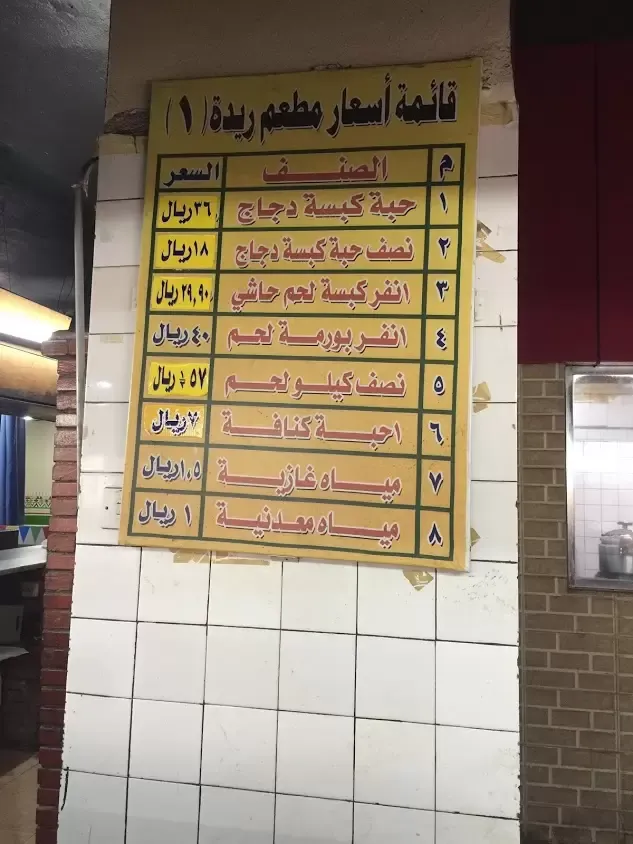 قائمة أسعار مطعم ريدة (١)
م الصنف السعر
١ حبة كبسة دجاج ٣٦ ريال
٢ نصف حبة كبسة دجاج ١٨ ريال
٣ ١نفر كبسة لحم حاشي ٢٩,٩٠ ريال
٤ ١نفر بورمة لحم ٤٠ ريال
٥ نصف كيلو لحم ٥٧ ريال
٦ ١حبة كنافة ٧ ريال
٧ مياه غازية ١,٥ ريال
٨ مياه معدنية ١ ريال